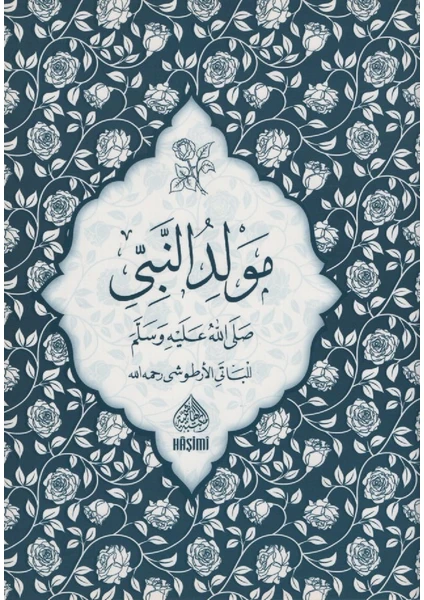 مَوْلِدُ النَّبِيِّ
صَلَّى اللهُ عَلَيْهِ وَسَلَّمَ
للباتى الأرطوشى رحمه الله
HÂŞİMİ